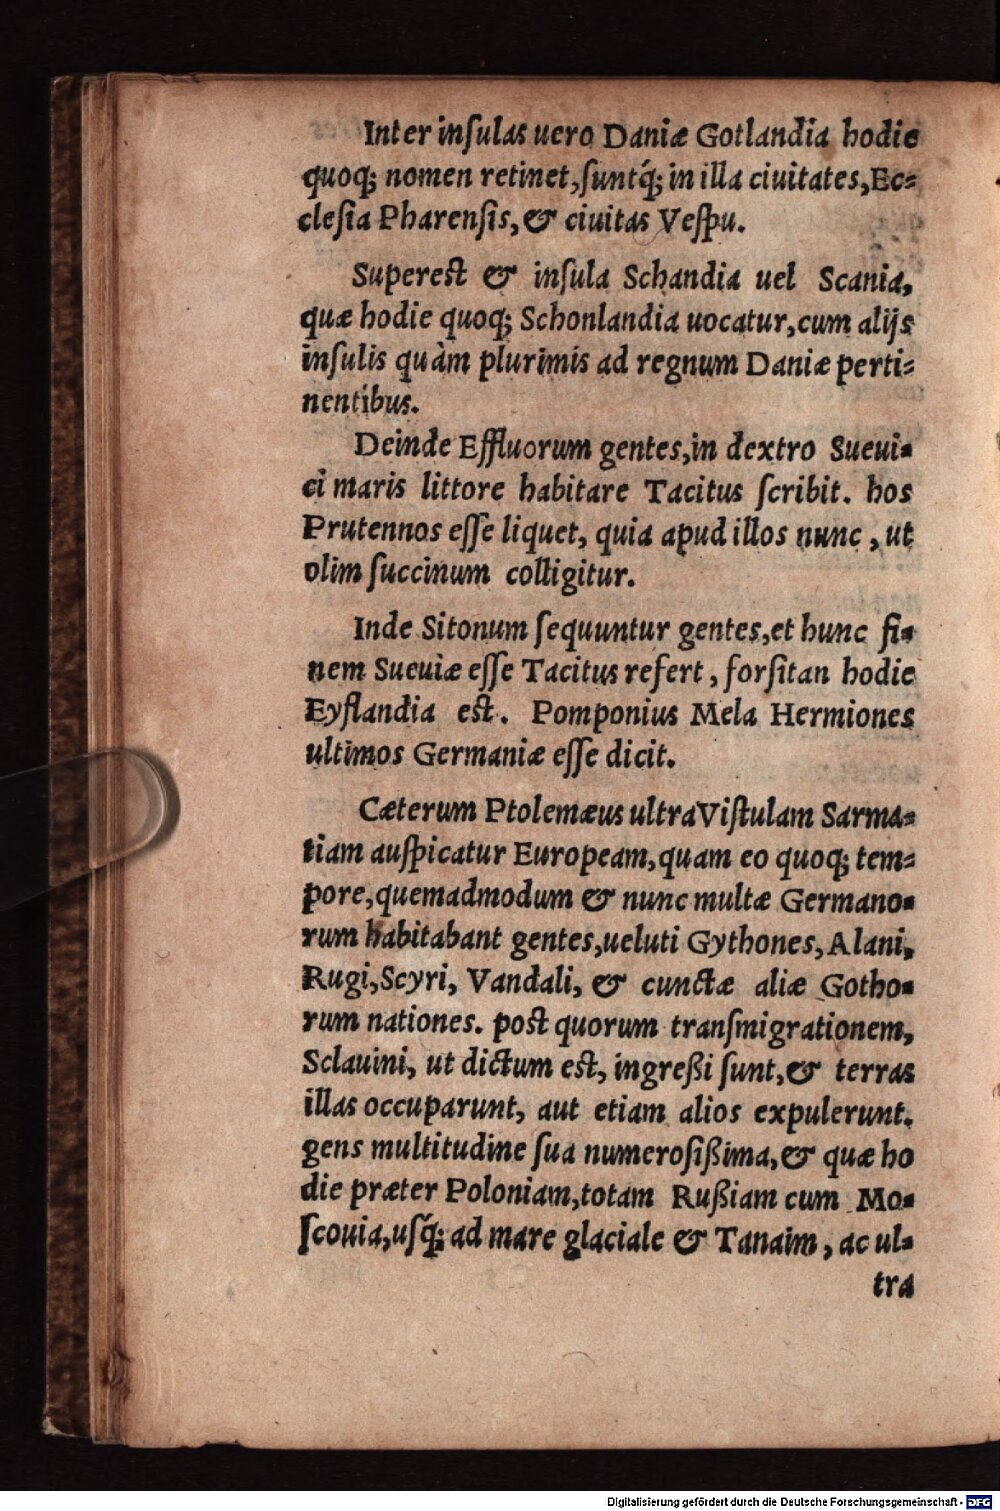 Inter inſulas uero Daniæ Gotlandia hodie
quoq; nomen retinet, ſuntq́; in illa ciuitates, Ec=
cleſia Pharenſis, & ciuitas Veſpu.
Supereſt & inſula Schandia uel Scania,
quæ hodie quoq; Schonlandia uocatur, cum alijs
inſulis quàm plurimis ad regnum Daniæ perti=
nentibus.
Deinde Effluorum gentes, in dextro Sueui=
ci maris littore habitare Tacitus ſcribit. hos
Prutennos eſſe liquet, quia apud illos nunc, ut
olim ſuccinum colligitur.
Inde Sitonum ſequuntur gentes, et hunc fi=
nem Sueuiæ eſſe Tacitus refert, forſitan hodie
Eyflandia eſt. Pomponius Mela Hermiones
ultimos Germaniæ eſſe dicit.
Cæterum Ptolemæus ultra Viſtulam Sarma=
tiam auſpicatur Europeam, quam eo quoq; tem=
pore, quemadmodum & nunc multæ Germano=
rum habitabant gentes, ueluti Gythones, Alani,
Rugi, Scyri, Vandali, & cunctæ aliæ Gotho=
rum nationes. poſt quorum tranſmigrationem,
Sclauini, ut dictum eſt, ingreßi ſunt, & terras
illas occuparunt, aut etiam alios expulerunt.
gens multitudine ſua numeroſißima, & quæ ho
die præter Poloniam, totam Rußiam cum Mo=
ſcouia, uſq́; ad mare glaciale & Tanaim, ac ul=
tra
Digitalisierung gefördert durch die Deutsche Forschungsgemeinschaft - DFG